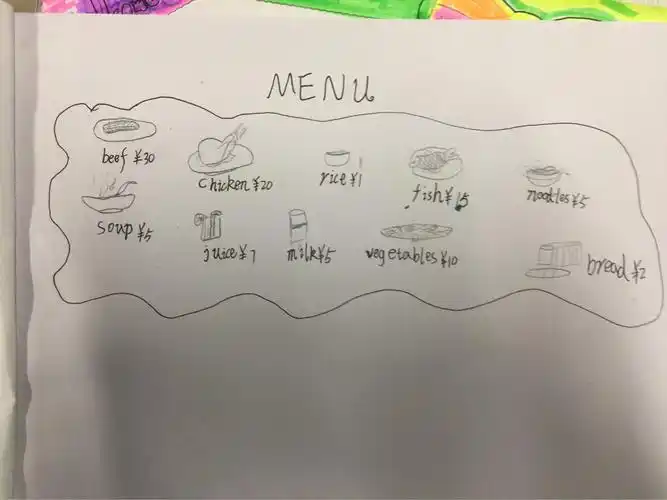 MENU
beef ¥30
chicken ¥20
rice ¥1
fish ¥15
noodles ¥5
soup ¥5
juice ¥7
milk ¥5
vegetables ¥10
bread ¥2